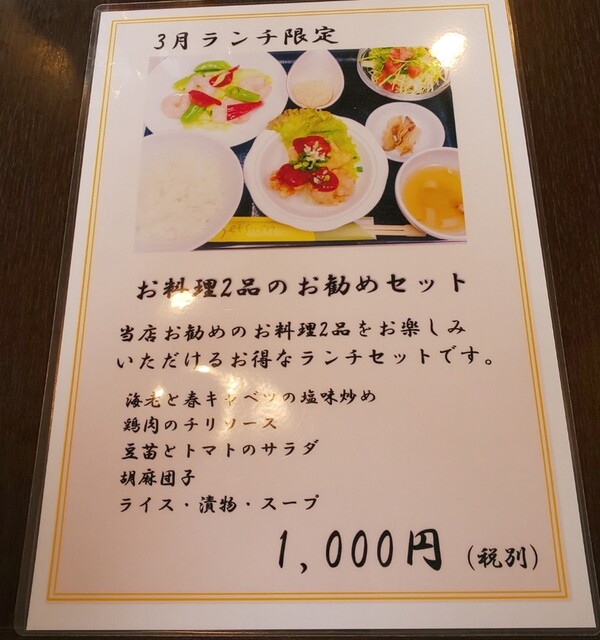 3月ランチ限定
お料理2品のお勧めセット
当店お勧めのお料理2品をお楽しみ
いただけるお得なランチセットです。
海老と春キャベツの塩味炒め
鶏肉のチリソース
豆苗とトマトのサラダ
胡麻団子
ライス・漬物・スープ
1,000円（税別）